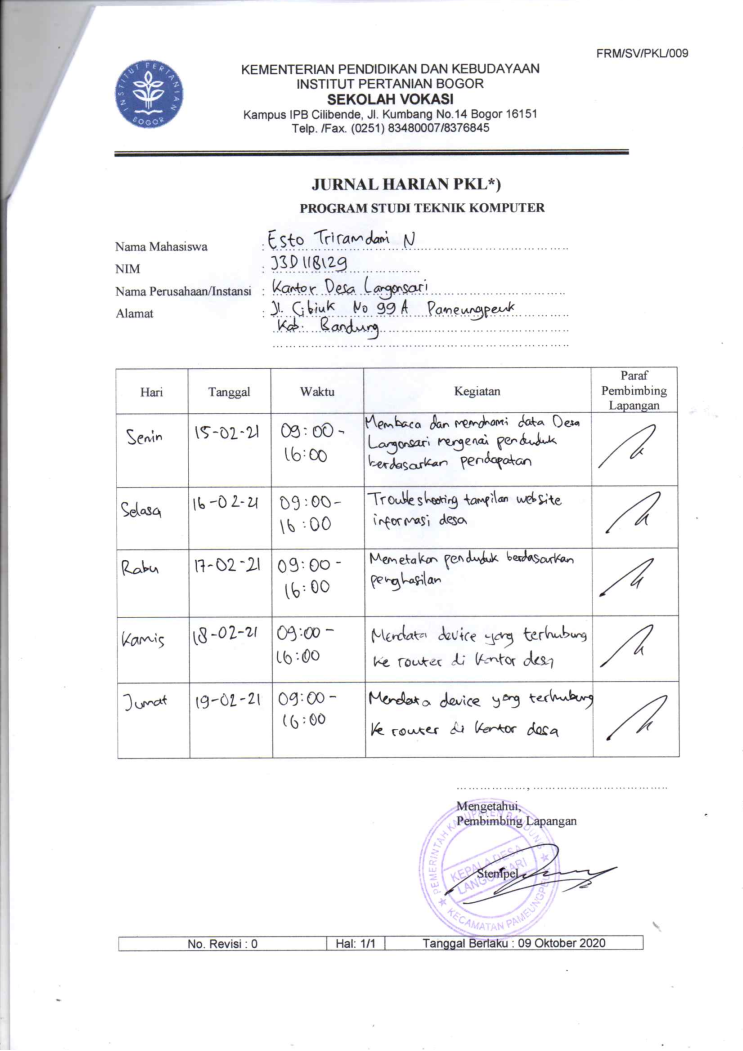 FRM/SV/PKL/009
INSTITUT PERTANIAN
BOGOR
KEMENTERIAN PENDIDIKAN DAN KEBUDAYAAN
INSTITUT PERTANIAN BOGOR
SEKOLAH VOKASI
Kampus IPB Cilibende, Jl. Kumbang No.14 Bogor 16151
Telp. /Fax. (0251) 83480007/8376845
JURNAL HARIAN PKL*)
PROGRAM STUDI TEKNIK KOMPUTER
Nama Mahasiswa : Esto Triramdani N
NIM : J3D118129
Nama Perusahaan/Instansi : Kantor Desa Langonsari
Alamat : Jl. Cibiuk No 99 A Pameungpeuk
Kab. Bandung
Hari Tanggal Waktu Kegiatan Paraf
Pembimbing
Lapangan
Senin 15-02-21 09:00 - Membaca dan memahami data Desa
16:00 Langonsari mengenai penduduk
berdasarkan pendapatan
Selasa 16-02-21 09:00 - Troubleshooting tampilan website
16:00 informasi desa
Rabu 17-02-21 09:00 - Memetakan penduduk berdasarkan
16:00 penghasilan
Kamis 18-02-21 09:00 - Mendata device yang terhubung
16:00 ke router di kantor desa
Jumat 19-02-21 09:00 - Mendata device yang terhubung
16:00 ke router di kantor desa
Mengetahui,
Pembimbing Lapangan
Stempel
PEMERINTAH KABUPATEN BANDUNG
KEPALA DESA
LANGONSARI
KECAMATAN PAMEUNGPEUK
No. Revisi : 0 Hal: 1/1 Tanggal Berlaku : 09 Oktober 2020